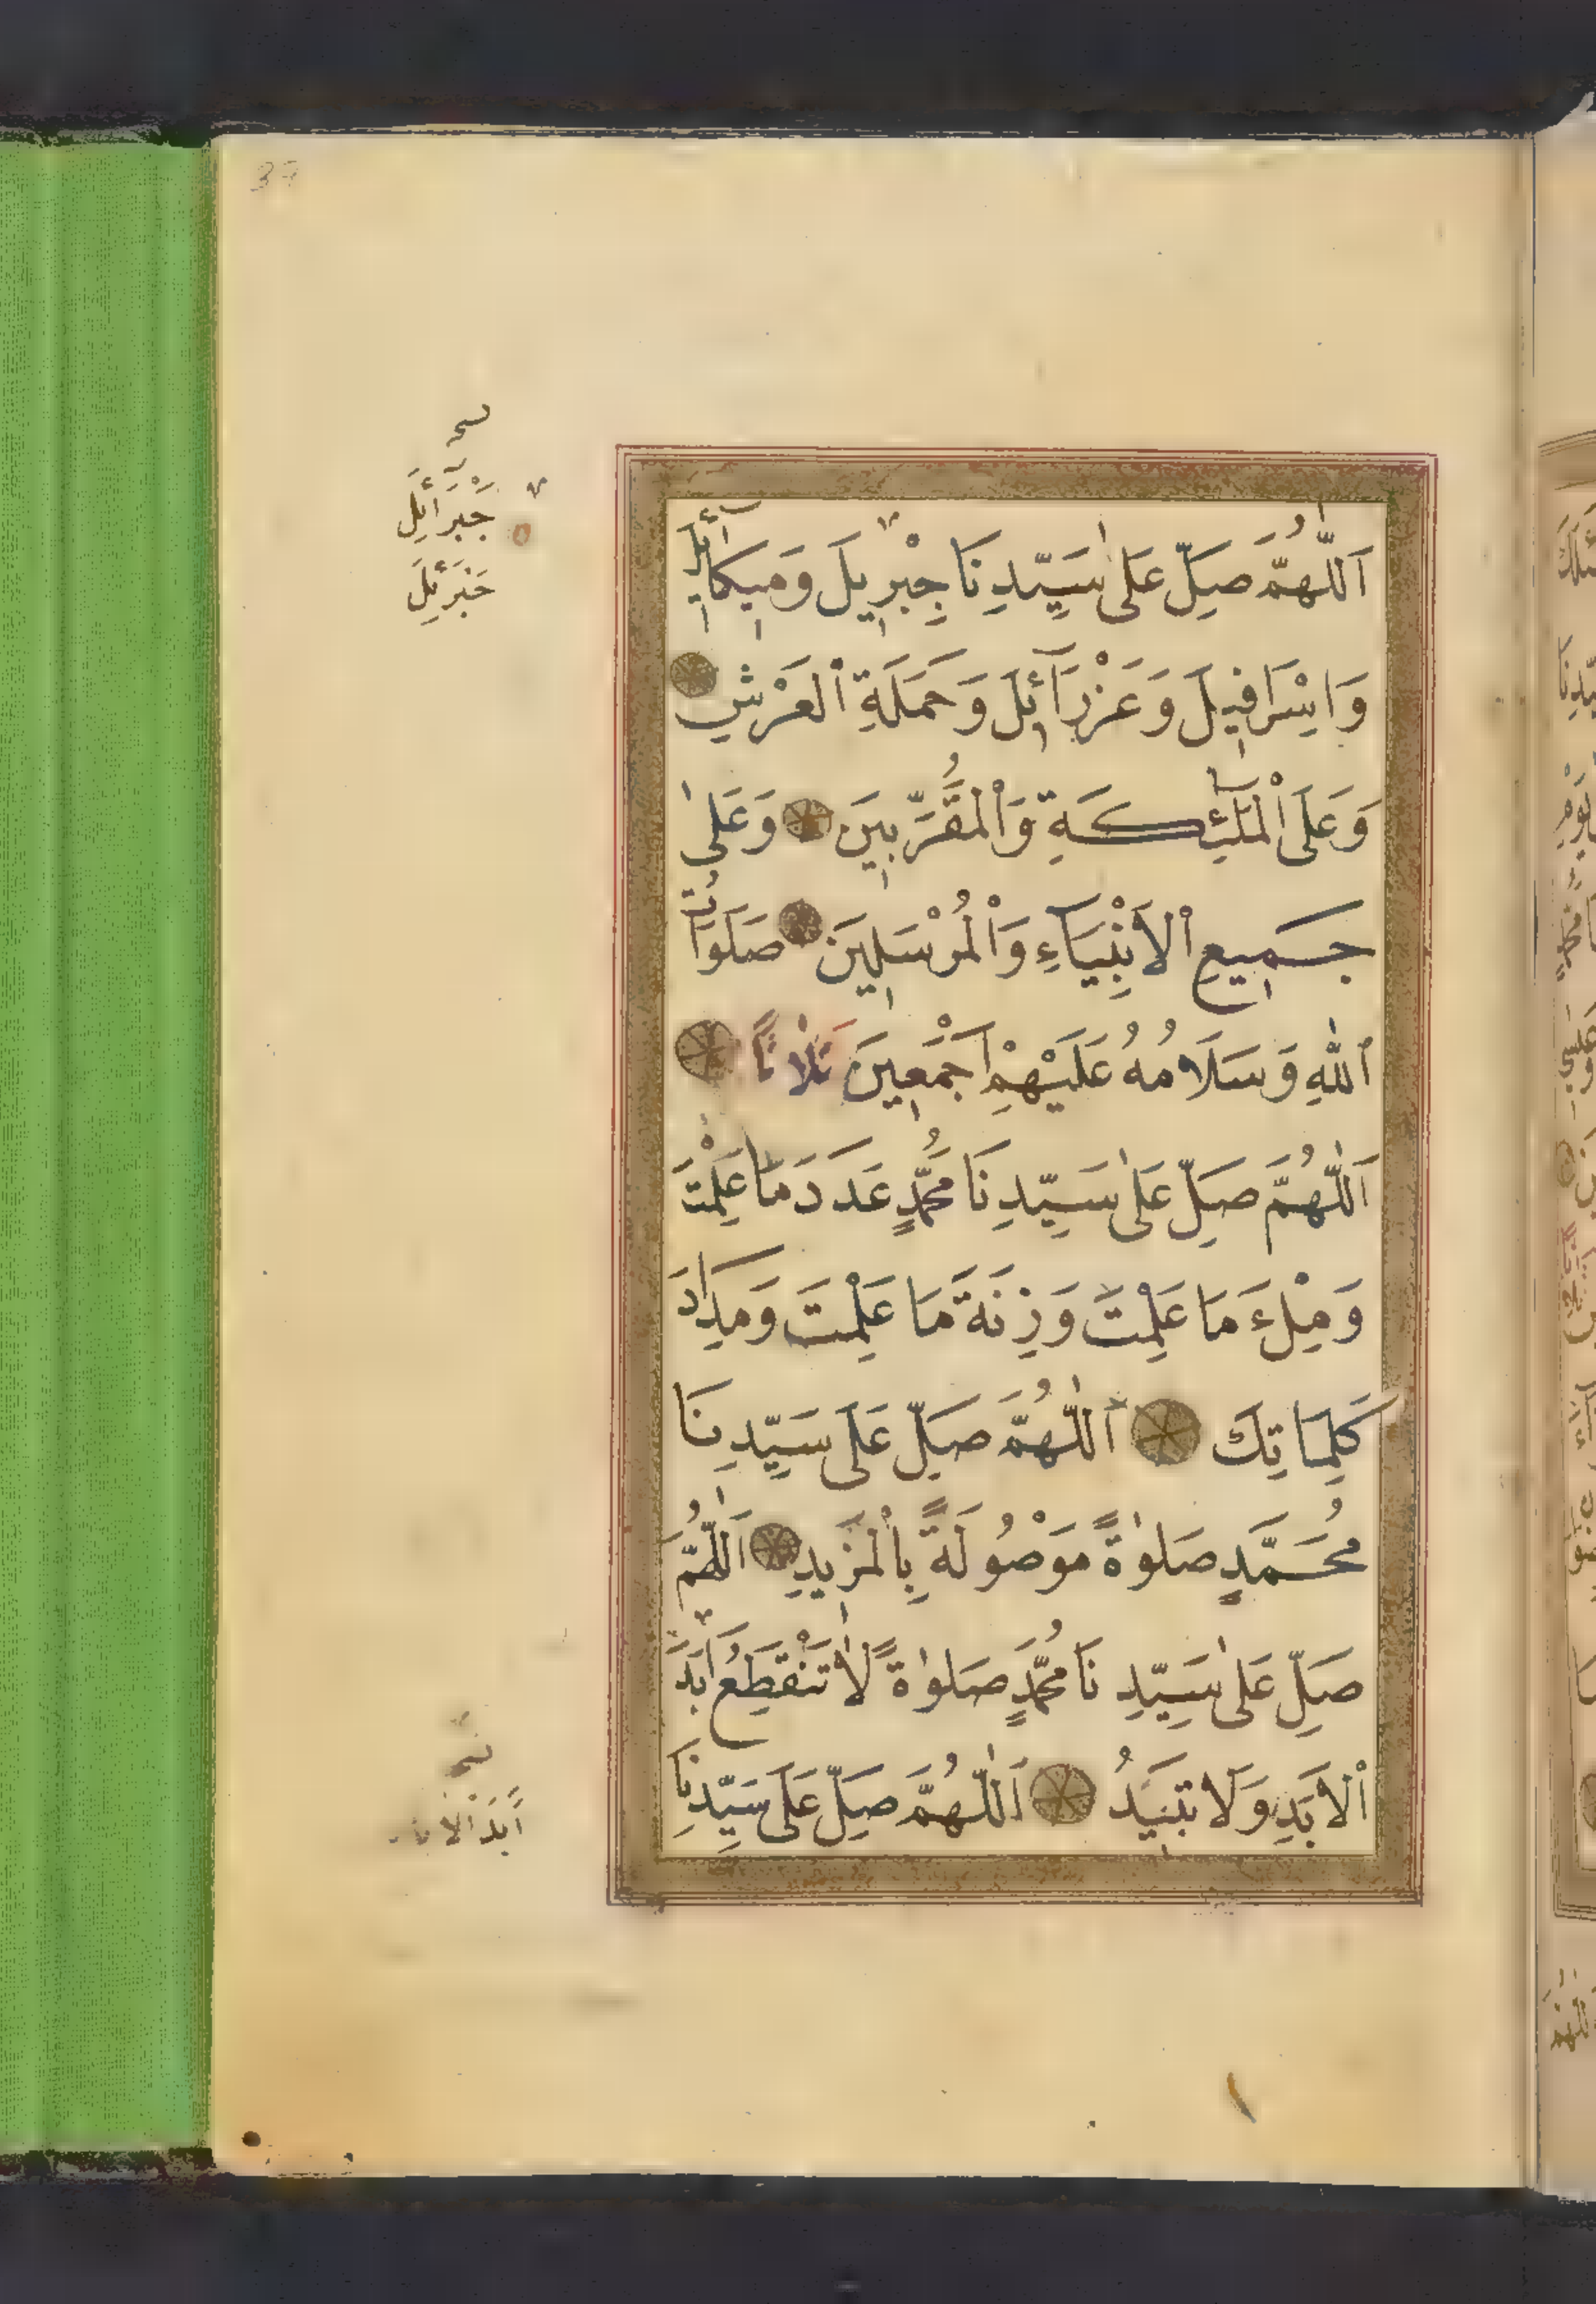 37
اَللّٰهُمَّ صَلِّ عَلٰى سَيِّدِنَا جِبْرِيلَ وَمِيكَآئِلَ
وَاِسْرَافِيلَ وَعَزْرَآئِلَ وَحَمَلَةِ ٱلْعَرْشِ
وَعَلَى ٱلْمَلٰٓئِكَةِ وَٱلْمُقَرَّبِينَ وَعَلٰى
جَمِيعِ ٱلْاَنْبِيَآءِ وَٱلْمُرْسَلِينَ صَلَوَاتُ
ٱللّٰهِ وَسَلَامُهُ عَلَيْهِمْ اَجْمَعِينَ ثَلَاثًا
اَللّٰهُمَّ صَلِّ عَلٰى سَيِّدِنَا مُحَمَّدٍ عَدَدَ مَا عَلِمْتَ
وَمِلْءَ مَا عَلِمْتَ وَزِنَةَ مَا عَلِمْتَ وَمِدَادَ
كَلِمَاتِكَ اَللّٰهُمَّ صَلِّ عَلَى سَيِّدِنَا
مُحَمَّدٍ صَلٰوةً مَوْصُولَةً بِٱلْمَزِيدِ اَللّٰهُمَّ
صَلِّ عَلٰى سَيِّدِنَا مُحَمَّدٍ صَلٰوةً لَا تَنْقَطِعُ اَبَدَ
ٱلْاَبَدِ وَلَا تَبِيدُ اَللّٰهُمَّ صَلِّ عَلَى سَيِّدِنَا
جَبْرَآئِلَ
جَبْرَئِلَ